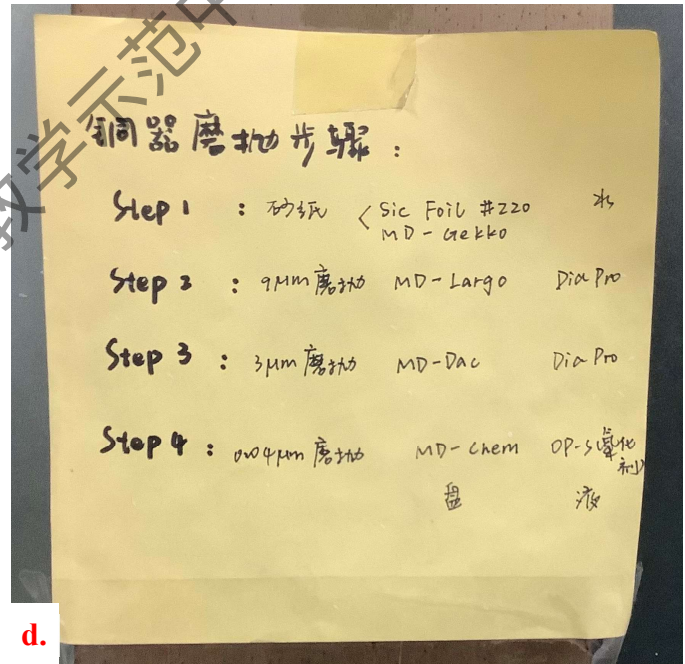 教学示范中
铜器磨抛步骤:
Step 1 : 砂纸 < Sic Foil #220 水
MD-Gekko
Step 2 : 9μm磨抛 MD-Largo DiaPro
Step 3 : 3μm磨抛 MD-Dac DiaPro
Step 4 : 0.04μm磨抛 MD-Chem OP-S氧化剂
盘 液
d.